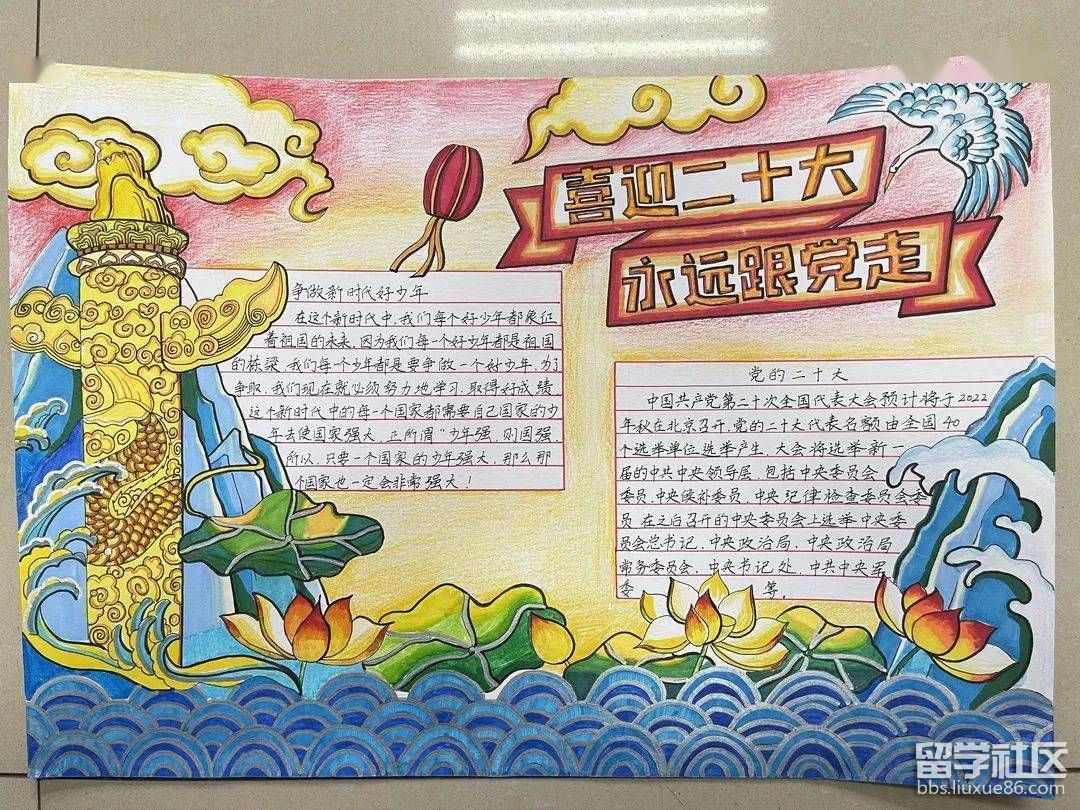 喜迎二十大
永远跟党走
争做新时代好少年
在这个新时代中，我们每个好少年都象征
着祖国的未来，因为我们每一个好少年都是祖国
的栋梁，我们每一个少年都是要争做一个好少年，为了
争取，我们现在就必须努力地学习，取得好成绩
这个新时代中的每一个国家都需要自己国家的少
年去使国家强大，正所谓“少年强，则国强，
所以，只要一个国家的少年强大，那么那
个国家也一定会非常强大！
党的二十大
中国共产党第二十次全国代表大会预计将于2022
年秋在北京召开，党的二十大代表名额由全国40
个选举单位选举产生，大会将选举新一
届的中共中央领导层，包括中央委员会
委员，中央候补委员，中央纪律检查委员会委
员，在之后召开的中央委员会上选举中央委
员会总书记、中央政治局、中央政治局
常务委员会、中央书记处、中共中央军
委 等。
留学社区
bbs.liuxue86.com